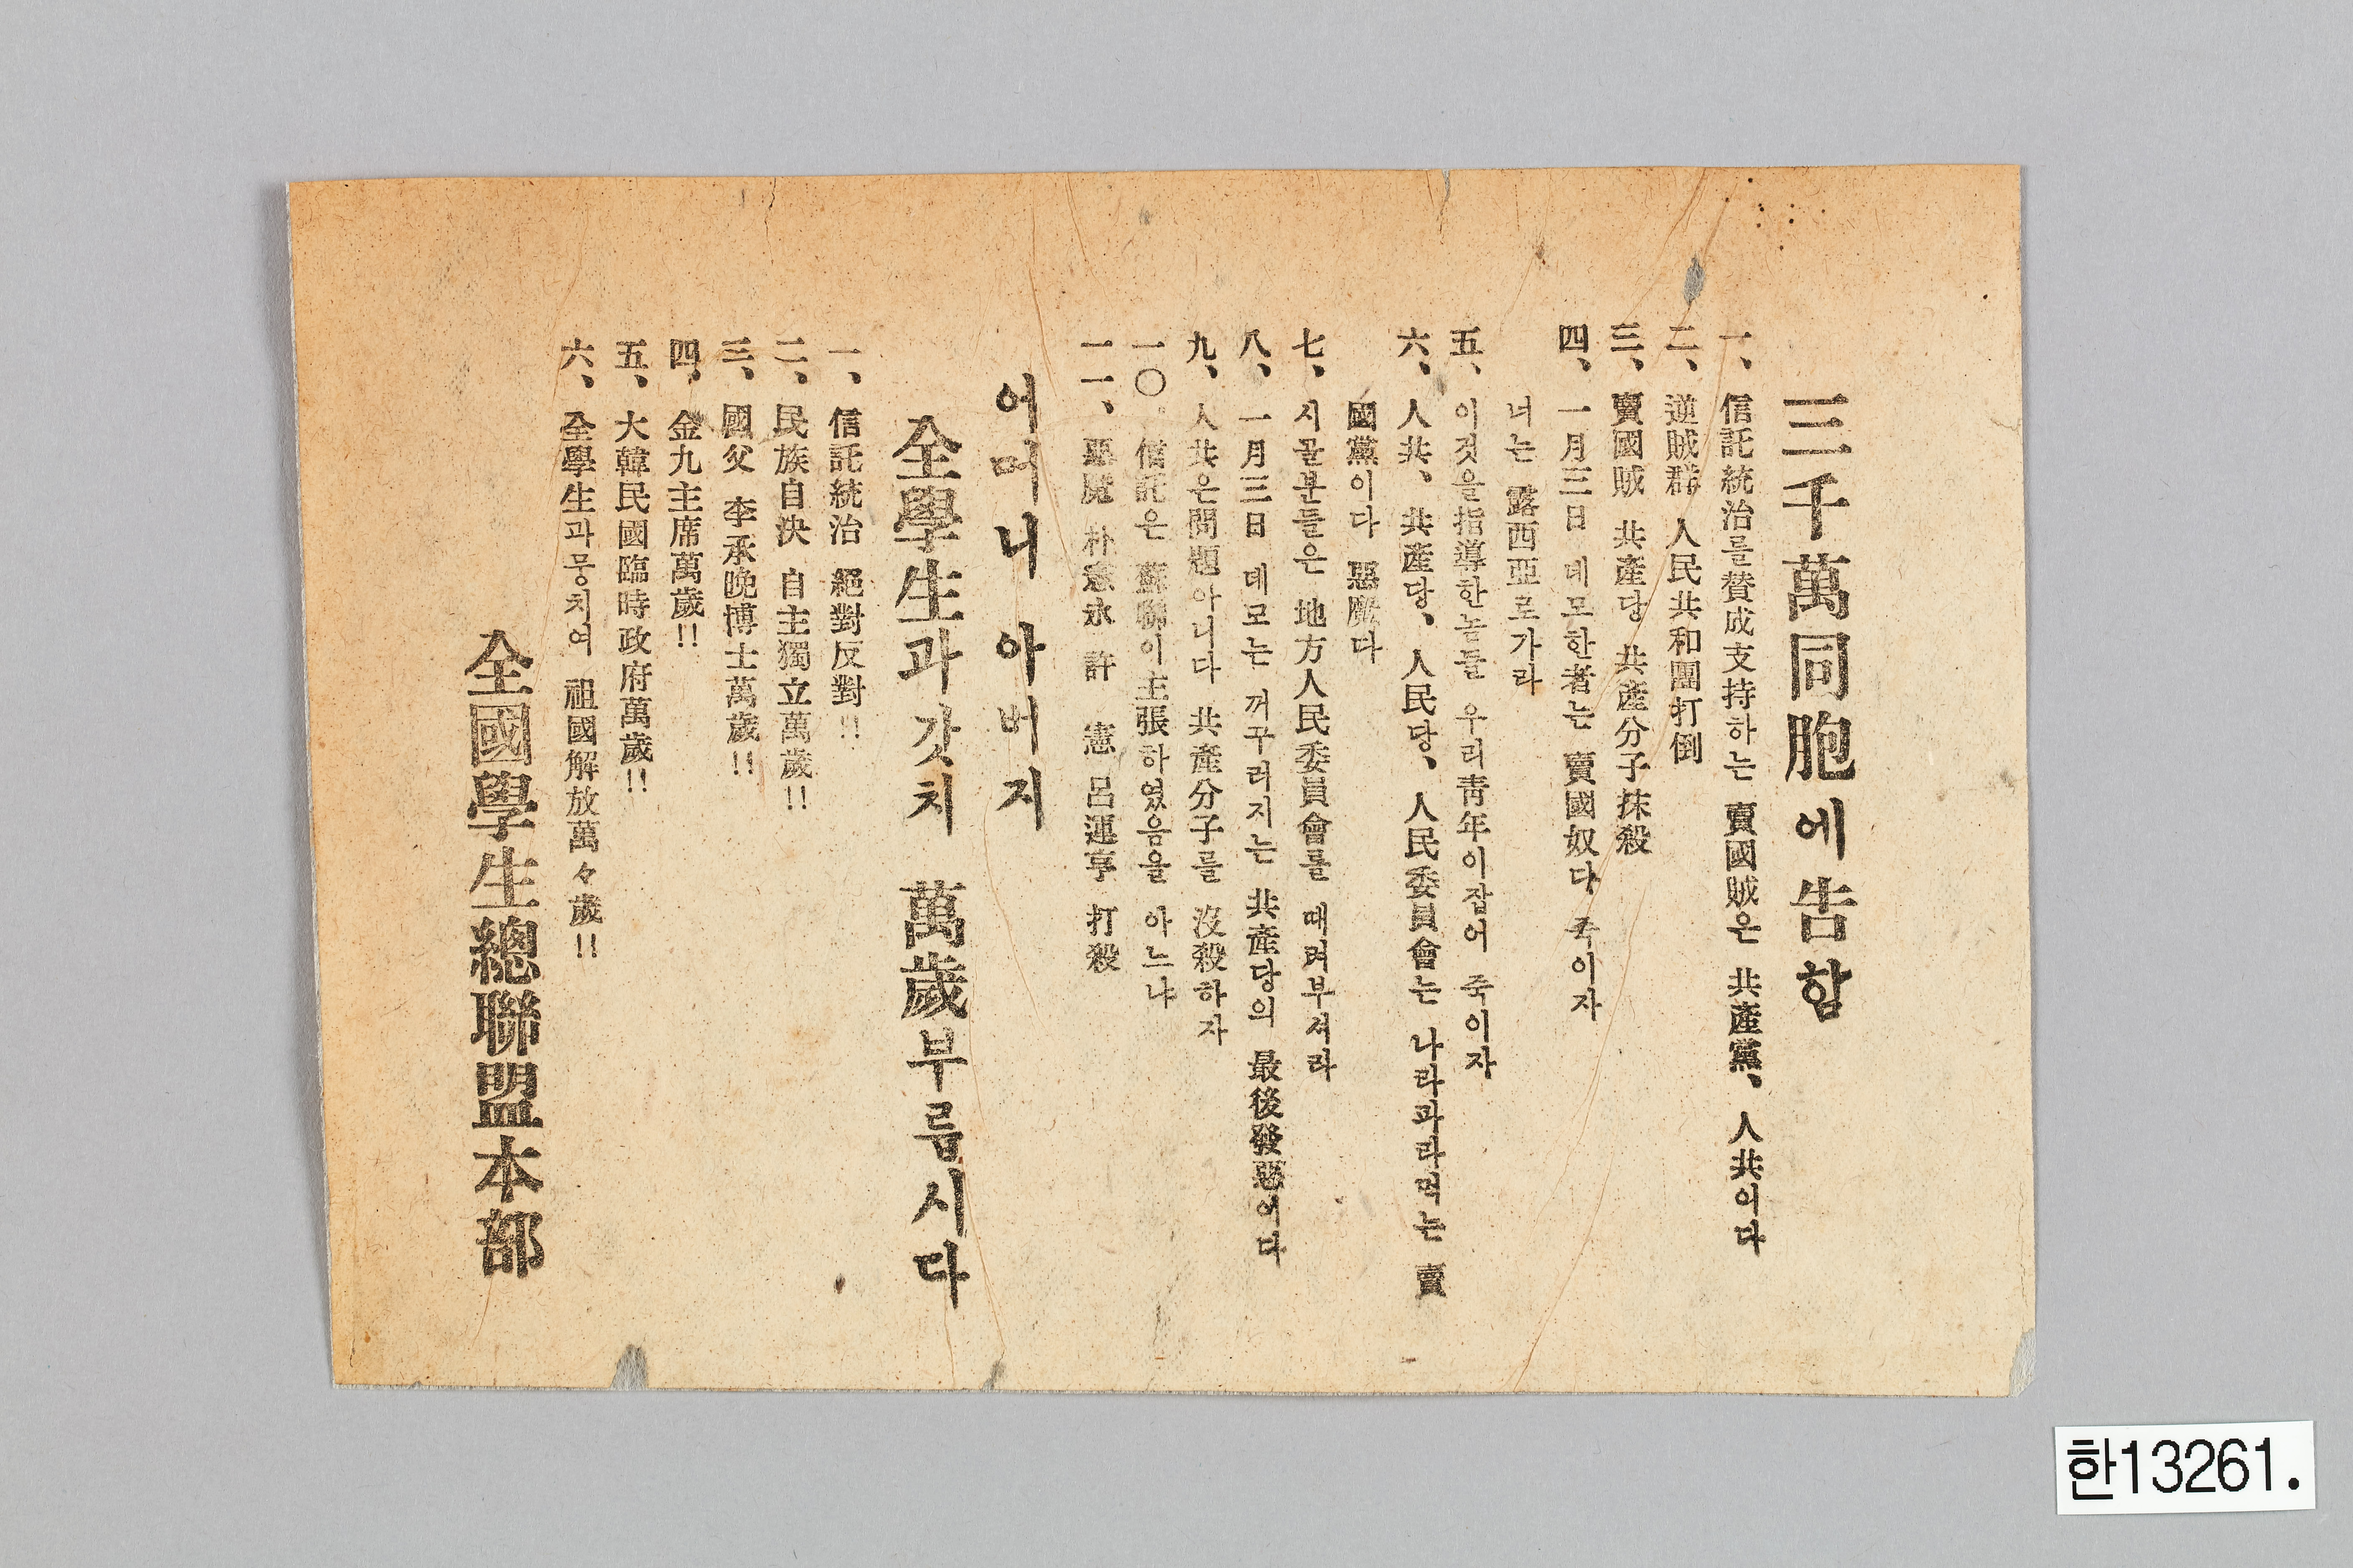 三千萬同胞에告함
一、信託統治를賛成支持하는 賣國賊은 共產黨、人共이다
二、逆賊群 人民共和國打倒
三、賣國賊 共產당 共產分子抹殺
四、一月三日 데모한者는 賣國奴다 죽이자
너는 露西亞로가라
五、이것을指導한놈들 우리靑年이잡어 죽이자
六、人共、共產당、人民당、人民委員會는 나라파라먹는 賣
國黨이다 惡魔다
七、시골분들은 地方人民委員會를 때려부셔라
八、一月三日 데모는 꺼꾸러지는 共產당의 最後發惡이다
九、人共은問題아니다 共產分子를 沒殺하자
一〇、信託은 蘇聯이主張하였음을 아느냐
一一、惡魔 朴憲永 許 憲 呂運亨 打殺
어머니 아버지
全學生과갓치 萬歲부릅시다
一、信託統治 絕對反對!!
二、民族自決 自主獨立萬歲!!
三、國父 李承晩博士萬歲!!
四、金九主席萬歲!!
五、大韓民國臨時政府萬歲!!
六、全學生과뭉치여 祖國解放萬々歲!!
全國學生總聯盟本部
한13261.